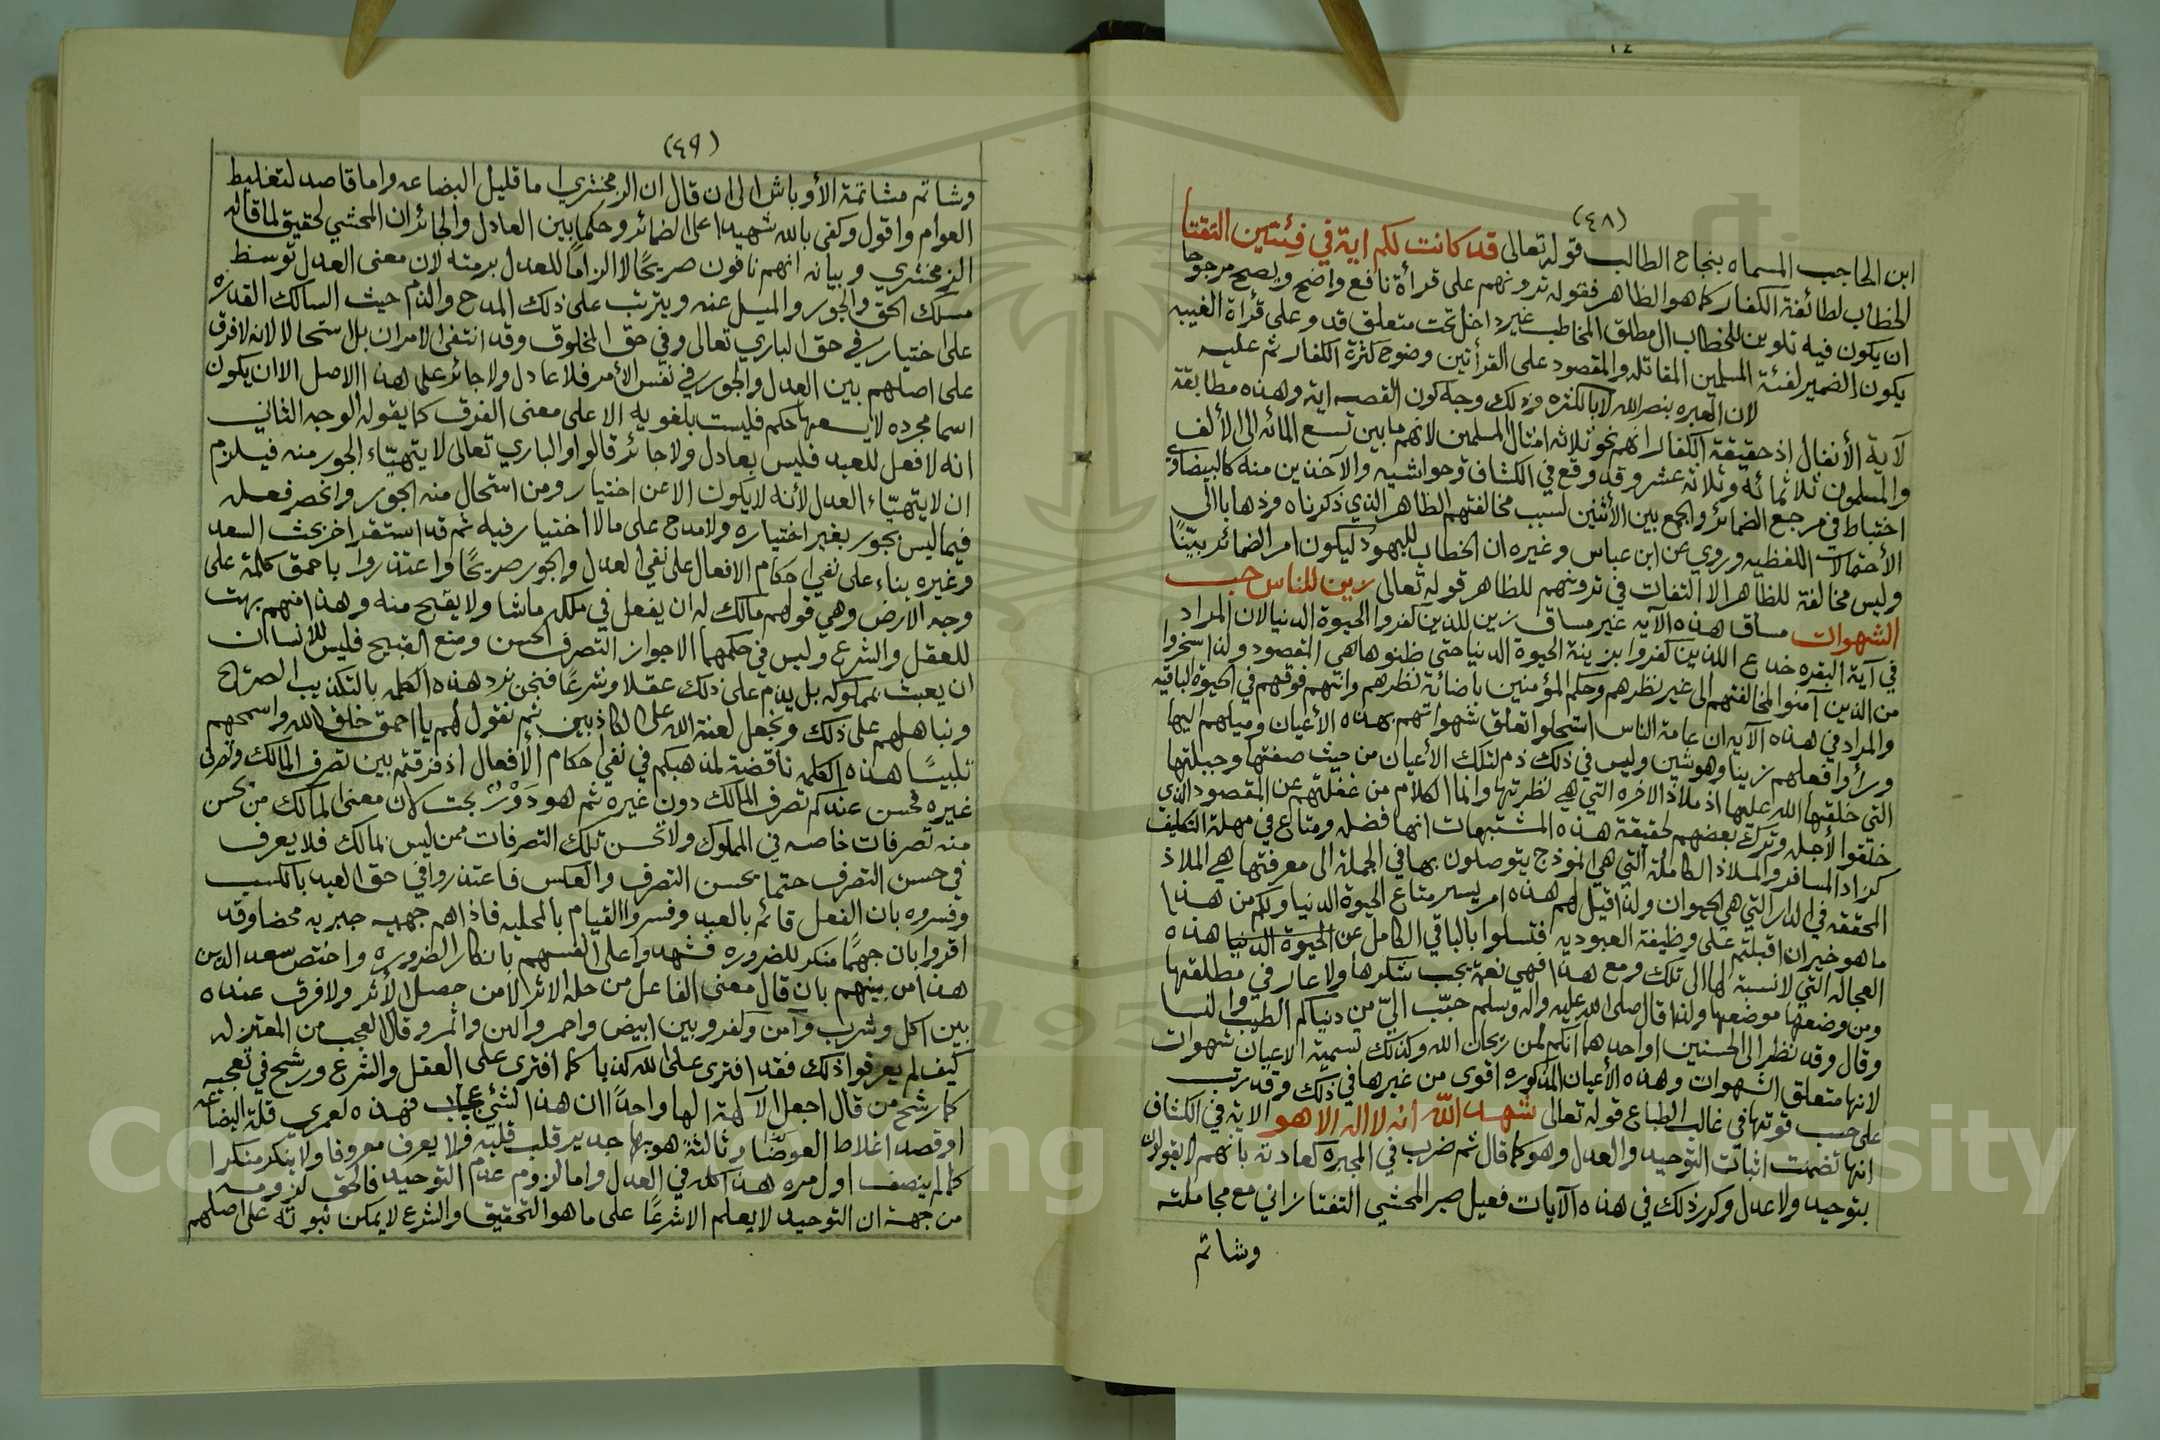 (٤٨)
ابن الحاجب المسماه بنجاح الطالب قوله تعالى قد كانت لكم اية في فئتين التقتا
الخطاب لطائفة الكفار كما هو الظاهر فقوله ترونهم على قرأة نافع واضح ويصح مرجوحا
ان يكون فيه تلوين للخطاب المطلق المخاطب غير داخل تحت متعلق قد وعلى قرأة الغيبه
يكون الضمير لفئة المسلمين المقاتله والمقصود على القرأتين وضوح كثرة الكفار ثم عليه
لان العبره بنصر الله لا بالكثره وذلك وجه كون القصه اية وهذه مطابقة
لآية الأنفال اذ حقيقة الكفار انهم نحو ثلاثه امثال المسلمين لانهم ما بين تسع المائه الى الألف
والمسلمون ثلاثمائه وثلاثه عشر وقد وقع في الكشاف وحواشيه والآخذين منه كالبيضاوي
اختباط في مرجع الضمائر والجمع بين الأثنين لسبب مخالفتهم الظاهر الذي ذكرناه وذهابا الى
الأحتمالات اللفظيه وروي عن ابن عباس وغيره ان الخطاب لليهود ليكون امر الضمائر بيّنًا
وليس مخالفة للظاهر الا التفات في ترونهم للظاهر قوله تعالى زين للناس حب
الشهوات مساق هذه الآيه غير مساق زين للذين كفروا الحيوة الدنيا لان المراد
في آية البقره خداع الذين كفروا بزينة الحيوة الدنيا حتى ظنوها هي المقصود ولذا سخروا
من الذين آمنوا لمخالفتهم الى غير نظرهم وحكم المؤمنين باضائة نظرهم وانهم فوقهم في الحيوة الباقيه
والمراد في هذه الآيه ان عامة الناس استحلوا تعلق شهواتهم بهذه الأعيان وميلهم اليها
ورأوا فعلهم زينا وهو شين وليس في ذلك ذم لتلك الأعيان من حيث صفتها وجبلتها
التي خلقها الله عليها اذ ملاذ الآخره التي هي نظرتها وانما الكلام من غفلتهم عن المقصود الذي
خلقوا لأجله وترك بعضهم لحقيقة هذه المشتبهات انها فضله ومتاع في مهلة التكليف
كزاد المسافر والملاذ الكاملة التي هي انموذج يتوصلون بها في الجملة الى معرفتها هي الملاذ
المحققه في الدار التي هي الحيوان ولذا قيل لهم هذه امر يسير متاع الحيوة الدنيا ولكم من هذا
ما هو خير ان اقبلتم على وظيفة العبوديه فتسلوا بالباقي الكامل عن الحيوة الدنيا هذه
العجاله التي لانسبة لها الى تلك ومع هذا فهي نعمة يجب شكرها ولا عار في مطلقها
ومن وضعها موضعها ولذا قال صلى الله عليه واله وسلم حبّب اليّ من دنياكم الطيب والنسا
وقال وقد نظر الى الحسنين او احدهما انكم لمن ريحان الله وكذلك تسمية الاعيان شهوات
لانها متعلق الشهوات وهذه الأعيان المذكوره اقوى من غيرها في ذلك وقد رتب
على حسب قوتها في غالب الطباع قوله تعالى شهد الله انه لا اله الا هو الاية في الكشاف
انها تضمنت اثبات التوحيد والعدل وهو كما قال ثم ضرب في المجبره كعادته بأنهم لا يقولون
بتوحيد ولا عدل وكرر ذلك في هذه الآيات فعيل صبر المحشي التفتازاني مع مجاملته
وشاتم
(٤٩)
وشاتم مشاتمة الأوباش الى ان قال ان الزمخشري اما قليل البضاعه واما قاصد لتغليط
العوام واقول وكفى بالله شهيدا على الضمائر وحكما بين العادل والجائر ان المحشي لحقيق لما قاله
الزمخشري وبيانه انهم نافون صريحًا لا الزامًا للعدل برمته لان معنى العدل توسط
مسلك الحق والجور والميل عنه ويترتب على ذلك المدح والذم حيث السالك القدره
على اختيار في حق الباري تعالى وفي حق المخلوق وقد انتفى الامران بل استحالا لانه لا فرق
على اصلهم بين العدل والجور في نفس الأمر فلا عادل ولا جائر على هذا الاصل الا ان يكون
اسما مجرده لا يسعها حكم فليست بلغويه الا على معنى الفرق كما يقوله الوجه الثاني
انه لا فعل للعبد فليس بعادل ولا جائر قالوا والباري تعالى لا يتهيّاء الجور منه فيلزم
ان لا يتهيّاء العدل لأنه لا يكون الا عن اختيار ومن استحال منه الجور وانحصر فعله
فيما ليس بجور بغير اختياره ولا مدح على ما لا اختيار فيه ثم قد استقر اخر بحث السعد
وغيره بناء على نفي احكام الافعال على نفي العدل والجور صريحًا واعتذروا باحمق كلمة على
وجه الارض وهي قولهم مالك له ان يفعل في ملكه ما شا ولا يقبح منه وهذا منهم بهت
للعقل والشرع وليس في حكمهما الا جواز التصرف الحسن ومنع القبيح فليس للأنسان
ان يعبث بمملوكه بل يذم على ذلك عقلا وشرعًا فنحن نرد هذه الكلمه بالتكذيب الصراح
ونباهلهم على ذلك ونجعل لعنة الله على الكاذبين ثم نقول لهم يا احمق خلق الله واسمجهم
تلبيسًا هذه الكلمه ناقضة لمذهبكم في نفي احكام الأفعال اذ فرقتم بين تصرف المالك وتصرف
غيره فحسن عندكم تصرف المالك دون غيره ثم هو دَوْرٌ بحت لان معنى المالك من يحسن
منه تصرفات خاصه في المملوك ولا تحسن تلك التصرفات ممن ليس بمالك فلا يعرف
في حسن التصرف حتما يحسن التصرف والعكس فاعتذروا في حق العبد بالكسب
وفسروه بان الفعل قائم بالعبد وفسروا القيام بالمحليه فاذا هم جهميه جبريه محضا وقد
اقروا بان جهمًا منكر للضروره فشهدوا على انفسهم بانكار الضروره واختص سعد الدين
هذا من بينهم بان قال معنى الفاعل من حله الاثر لا من حصل الأثر ولا فرق عنده
بين اكل وشرب وآمن وكفر وبين ابيض واحمر وألبن واثمر وقال العجب من المعتزله
كيف لم يعرفوا ذلك فقد افترى على الله كذبا كما افترى على العقل والشرع ورشح في تعجيبه
كما رشح من قال اجعل الآلهة الها واحدًا ان هذا لشئ عجاب فهذه لعمري قلة البضاعه
او قصد اغلاط العوضًا وثالثة هو بها جدير قلب قلبه فلا يعرف معروفا ولا ينكر منكرا
كما لم ينصف اول مره هذا كله في العدل واما لزوم عدم التوحيد فالحق لزومه
من جهة ان التوحيد لا يعلم الا شرعًا على ما هو التحقيق والشرع لا يمكن ثبوته على اصلهم
Copyright © King Saud University